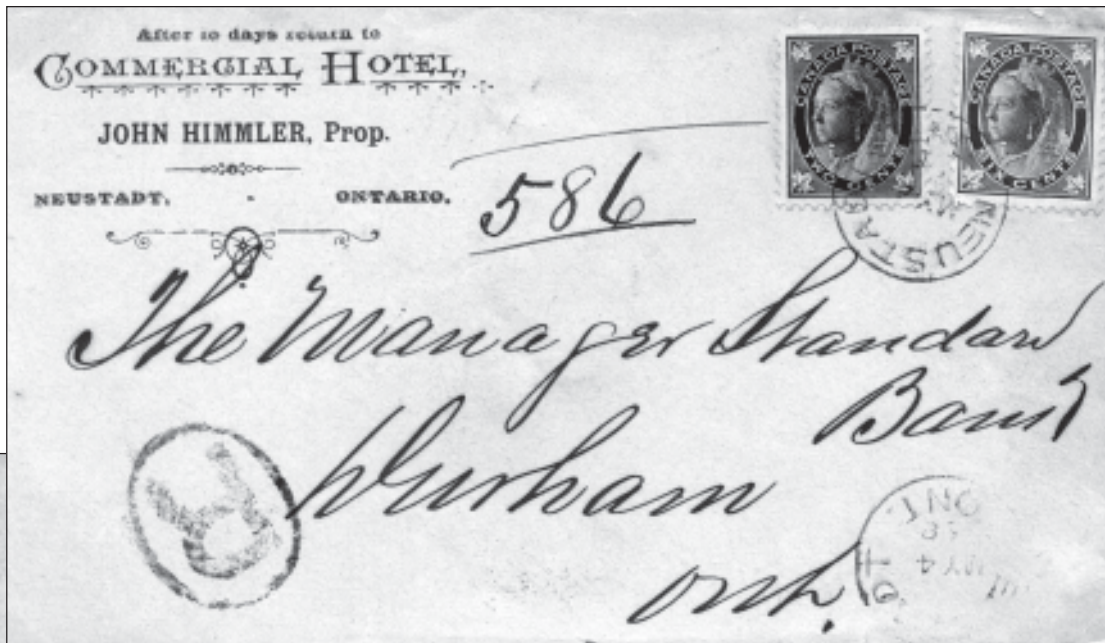 After 10 days return to
COMMERCIAL HOTEL,
JOHN HIMMLER, Prop.
NEUSTADT, - ONTARIO.
586
CANADA POSTAGE
TWO CENTS
CANADA POSTAGE
SIX CENTS
NEUSTA
The Manager Standard
Bank
Durham
Ont.
R
ONT.
MY 4